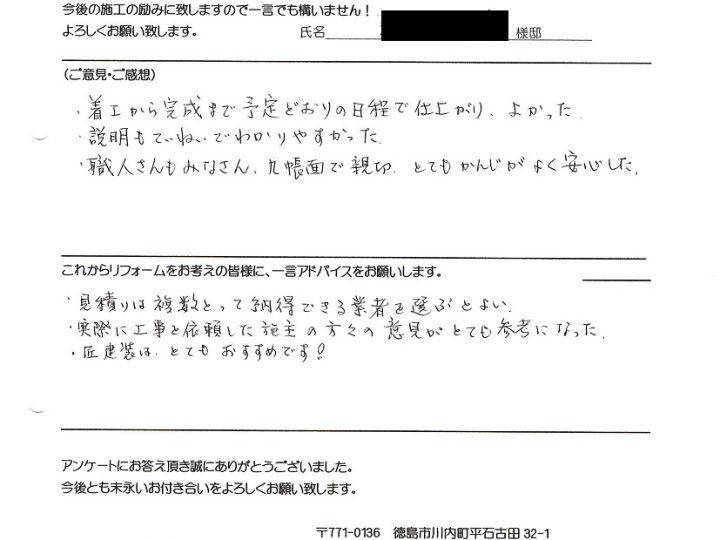 今後の施工の励みに致しますので一言でも構いません！
よろしくお願い致します。 氏名 様邸
（ご意見・ご感想）
・着工から完成まで予定どおりの日程で仕上がり、よかった.
・説明もていねいでわかりやすかった.
・職人さんもみなさん、几帳面で親切. とてもかんじがよく安心した.
これからリフォームをお考えの皆様に、一言アドバイスをお願いします。
・見積りは複数とって納得できる業者を選ぶとよい.
・実際に工事を依頼した施主の方々の意見がとても参考になった.
・匠建装は、とてもおすすめです！
アンケートにお答え頂き誠にありがとうございました。
今後とも末永いお付き合いをよろしくお願い致します。
〒771-0136 徳島市川内町平石古田 32-1